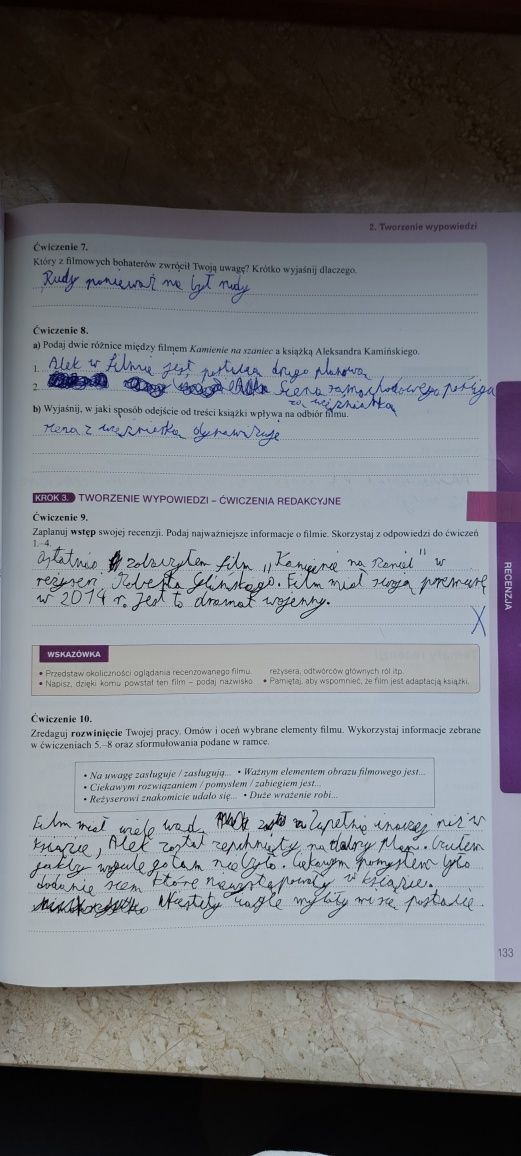 2. Tworzenie wypowiedzi
Ćwiczenie 7.
Który z filmowych bohaterów zwrócił Twoją uwagę? Krótko wyjaśnij dlaczego.
Rudy ponieważ nie był rudy
Ćwiczenie 8.
a) Podaj dwie różnice między filmem Kamienie na szaniec a książką Aleksandra Kamińskiego.
1. Alek w filmie jest postacią drugo planową
2. scena samochodowego pościgu
za więźniarką
b) Wyjaśnij, w jaki sposób odejście od treści książki wpływa na odbiór filmu.
scena z więźniarką dynamizuje
KROK 3. TWORZENIE WYPOWIEDZI – ĆWICZENIA REDAKCYJNE
Ćwiczenie 9.
Zaplanuj wstęp swojej recenzji. Podaj najważniejsze informacje o filmie. Skorzystaj z odpowiedzi do ćwiczeń
1.–4.
Ostatnio zobaczyłem film „Kamienie na " w
reżyseri Roberta Glińskiego. Film miał swoją premierę
w 2014 r. Jest to dramat wojenny.
X
RECENZJA
WSKAZÓWKA
• Przedstaw okoliczności oglądania recenzowanego filmu.
• Napisz, dzięki komu powstał ten film – podaj nazwisko
reżysera, odtwórców głównych ról itp.
• Pamiętaj, aby wspomnieć, że film jest adaptacją książki.
Ćwiczenie 10.
Zredaguj rozwinięcie Twojej pracy. Omów i oceń wybrane elementy filmu. Wykorzystaj informacje zebrane
w ćwiczeniach 5.–8 oraz sformułowania podane w ramce.
• Na uwagę zasługuje / zasługują... • Ważnym elementem obrazu filmowego jest...
• Ciekawym rozwiązaniem / pomysłem / zabiegiem jest...
• Reżyserowi znakomicie udało się... • Duże wrażenie robi...
Film miał wiele wad. Zupełnie inaczej niż w
książce, Alek został zepchnięty na dalszy plan. Czułem
jakby wogule go tam nie było. Ciekawym pomysłem było
dodanie scen które niewystępowały w książce.
Niestety ciągle myliły mi się postacie.
133